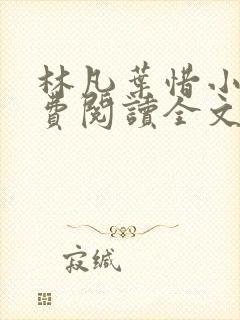 林凡葉惜小
費閱讀全文
寂缄